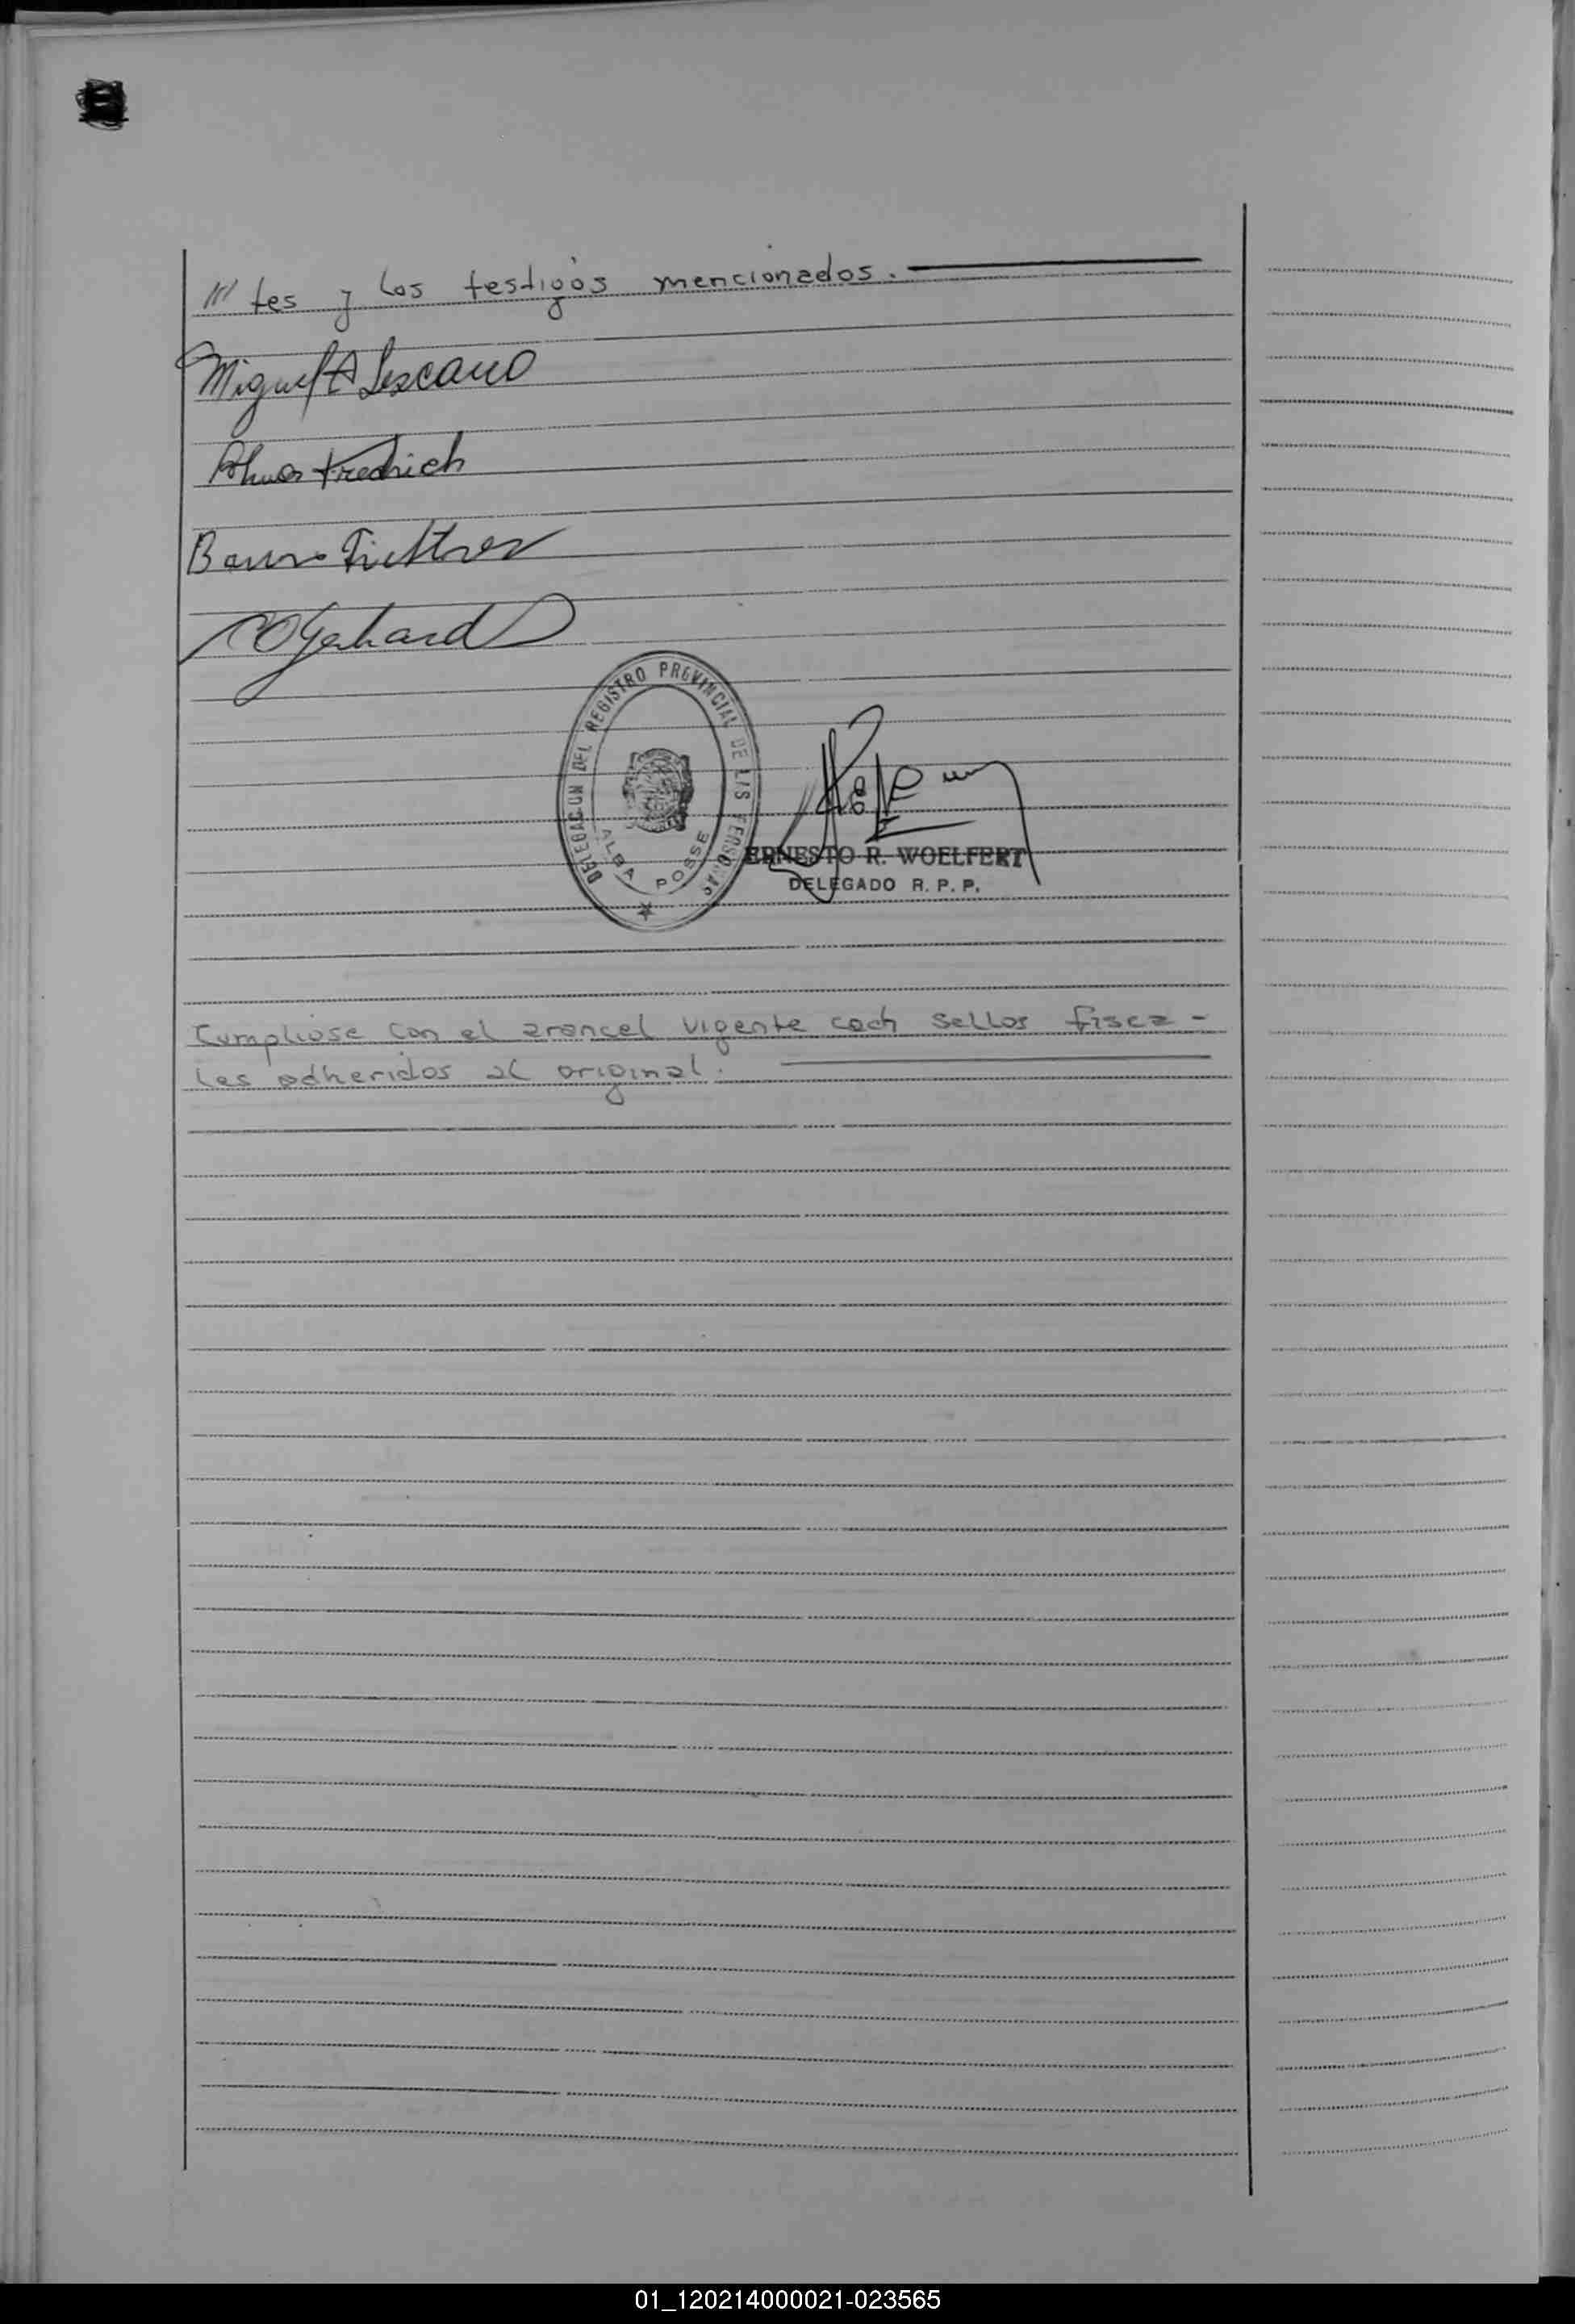 /// tes y los testigos mencionados.
Miguel A Lescano
Fredrich
Gerhard
DELEGACION DEL REGISTRO PROVINCIAL DE LAS PERSONAS
ALBA POSSE
ERNESTO R. WOELFERT
DELEGADO R. P. P.
Cumpliose con el arancel vigente coch sellos fisca-
les adheridos al original.
01_120214000021-023565